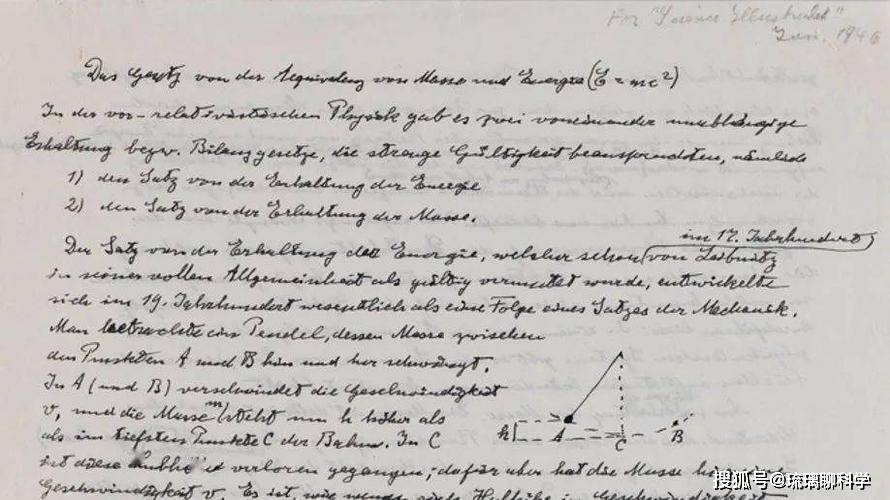 For "Science Illustrated"
Jan. 1946
Das Gesetz von der Aequivalenz von Masse und Energie (E = mc²)
In der vor-relativistischen Physik gab es zwei voneinander unabhängige
Erhaltung bezw. Bilanzgesetze, die strenge Gültigkeit beanspruchten, nämlich
1) den Satz von der Erhaltung der Energie
2) den Satz von der Erhaltung der Masse.
im 17. Jahrhundert
Der Satz von der Erhaltung der Energie, welcher schon von Leibnitz
in seiner vollen Allgemeinheit als gültig vermutet wurde, entwickelte
sich im 19. Jahrhundert wesentlich als eine Folge eines Satzes der Mechanik.
Man betrachte ein Pendel, dessen Masse zwischen
den Punkten A und B hin und her schwingt.
In A (und B) verschwindet die Geschwindigkeit
v, und die Masse m steht um h höher als
als im tiefsten Punkte C der Bahn. In C
h A C B
ist diese verloren gegangen; dafür aber hat die Masse hier
Geschwindigkeit v. Es ist, wie wenn sich Hubhöhe in Geschwindigkeit
搜狐号@琉璃聊科学